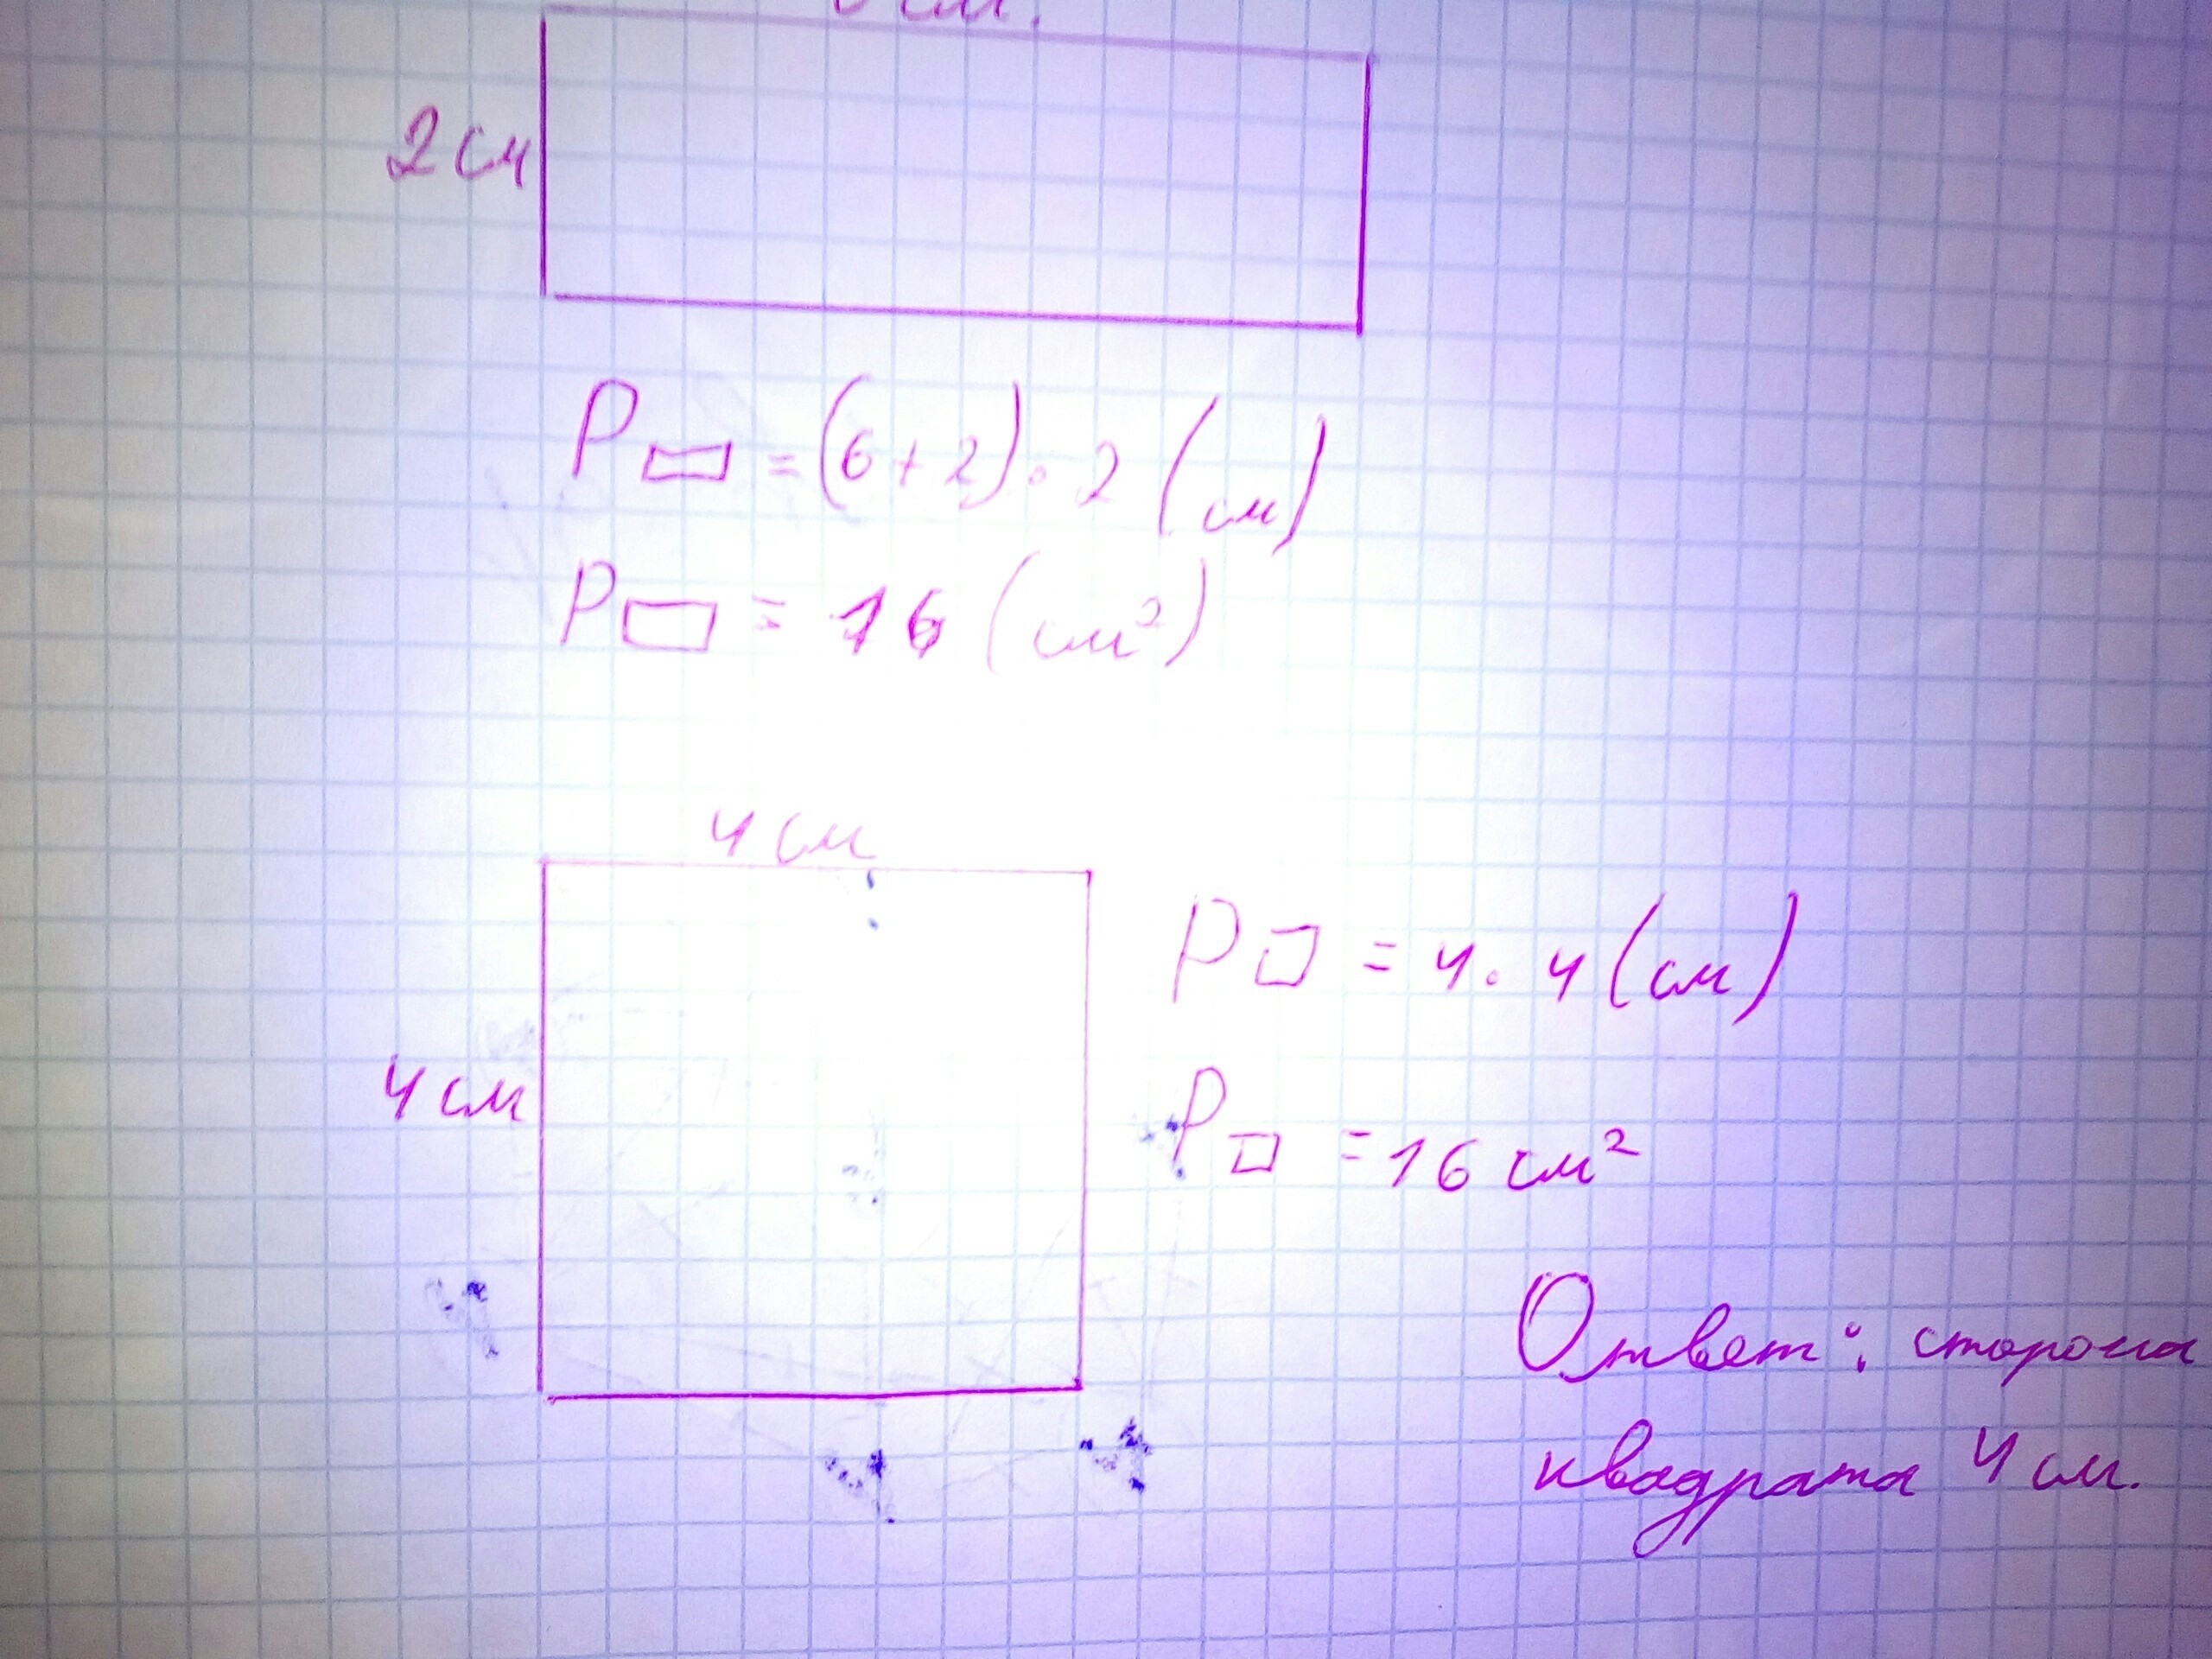 2 см
P▭ = (6+2)·2 (см)
P▭ = 16 (см²)
4 см
4 см
P□ = 4·4 (см)
P□ = 16 см²
Ответ: сторона
квадрата 4 см.